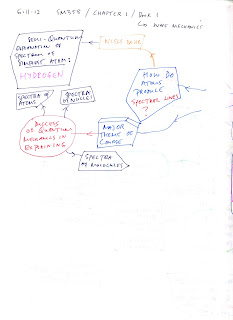 6-11-12 SM358 / CHAPTER 1 / BOOK 1
WAVE MECHANICS
SEMI-QUANTUM
EXPLANATION OF
SPECTRUM OF
SIMPLEST ATOM:
HYDROGEN
NIELS BOHR
HOW DO
ATOMS
PRODUCE
SPECTRAL LINES
?
SPECTRA OF
ATOMS
SPECTRA
OF NUCLEI
SUCCESS
OF QUANTUM
MECHANICS IN
EXPLAINING
MAJOR
THEME OF
COURSE
SPECTRA
OF MOLECULES